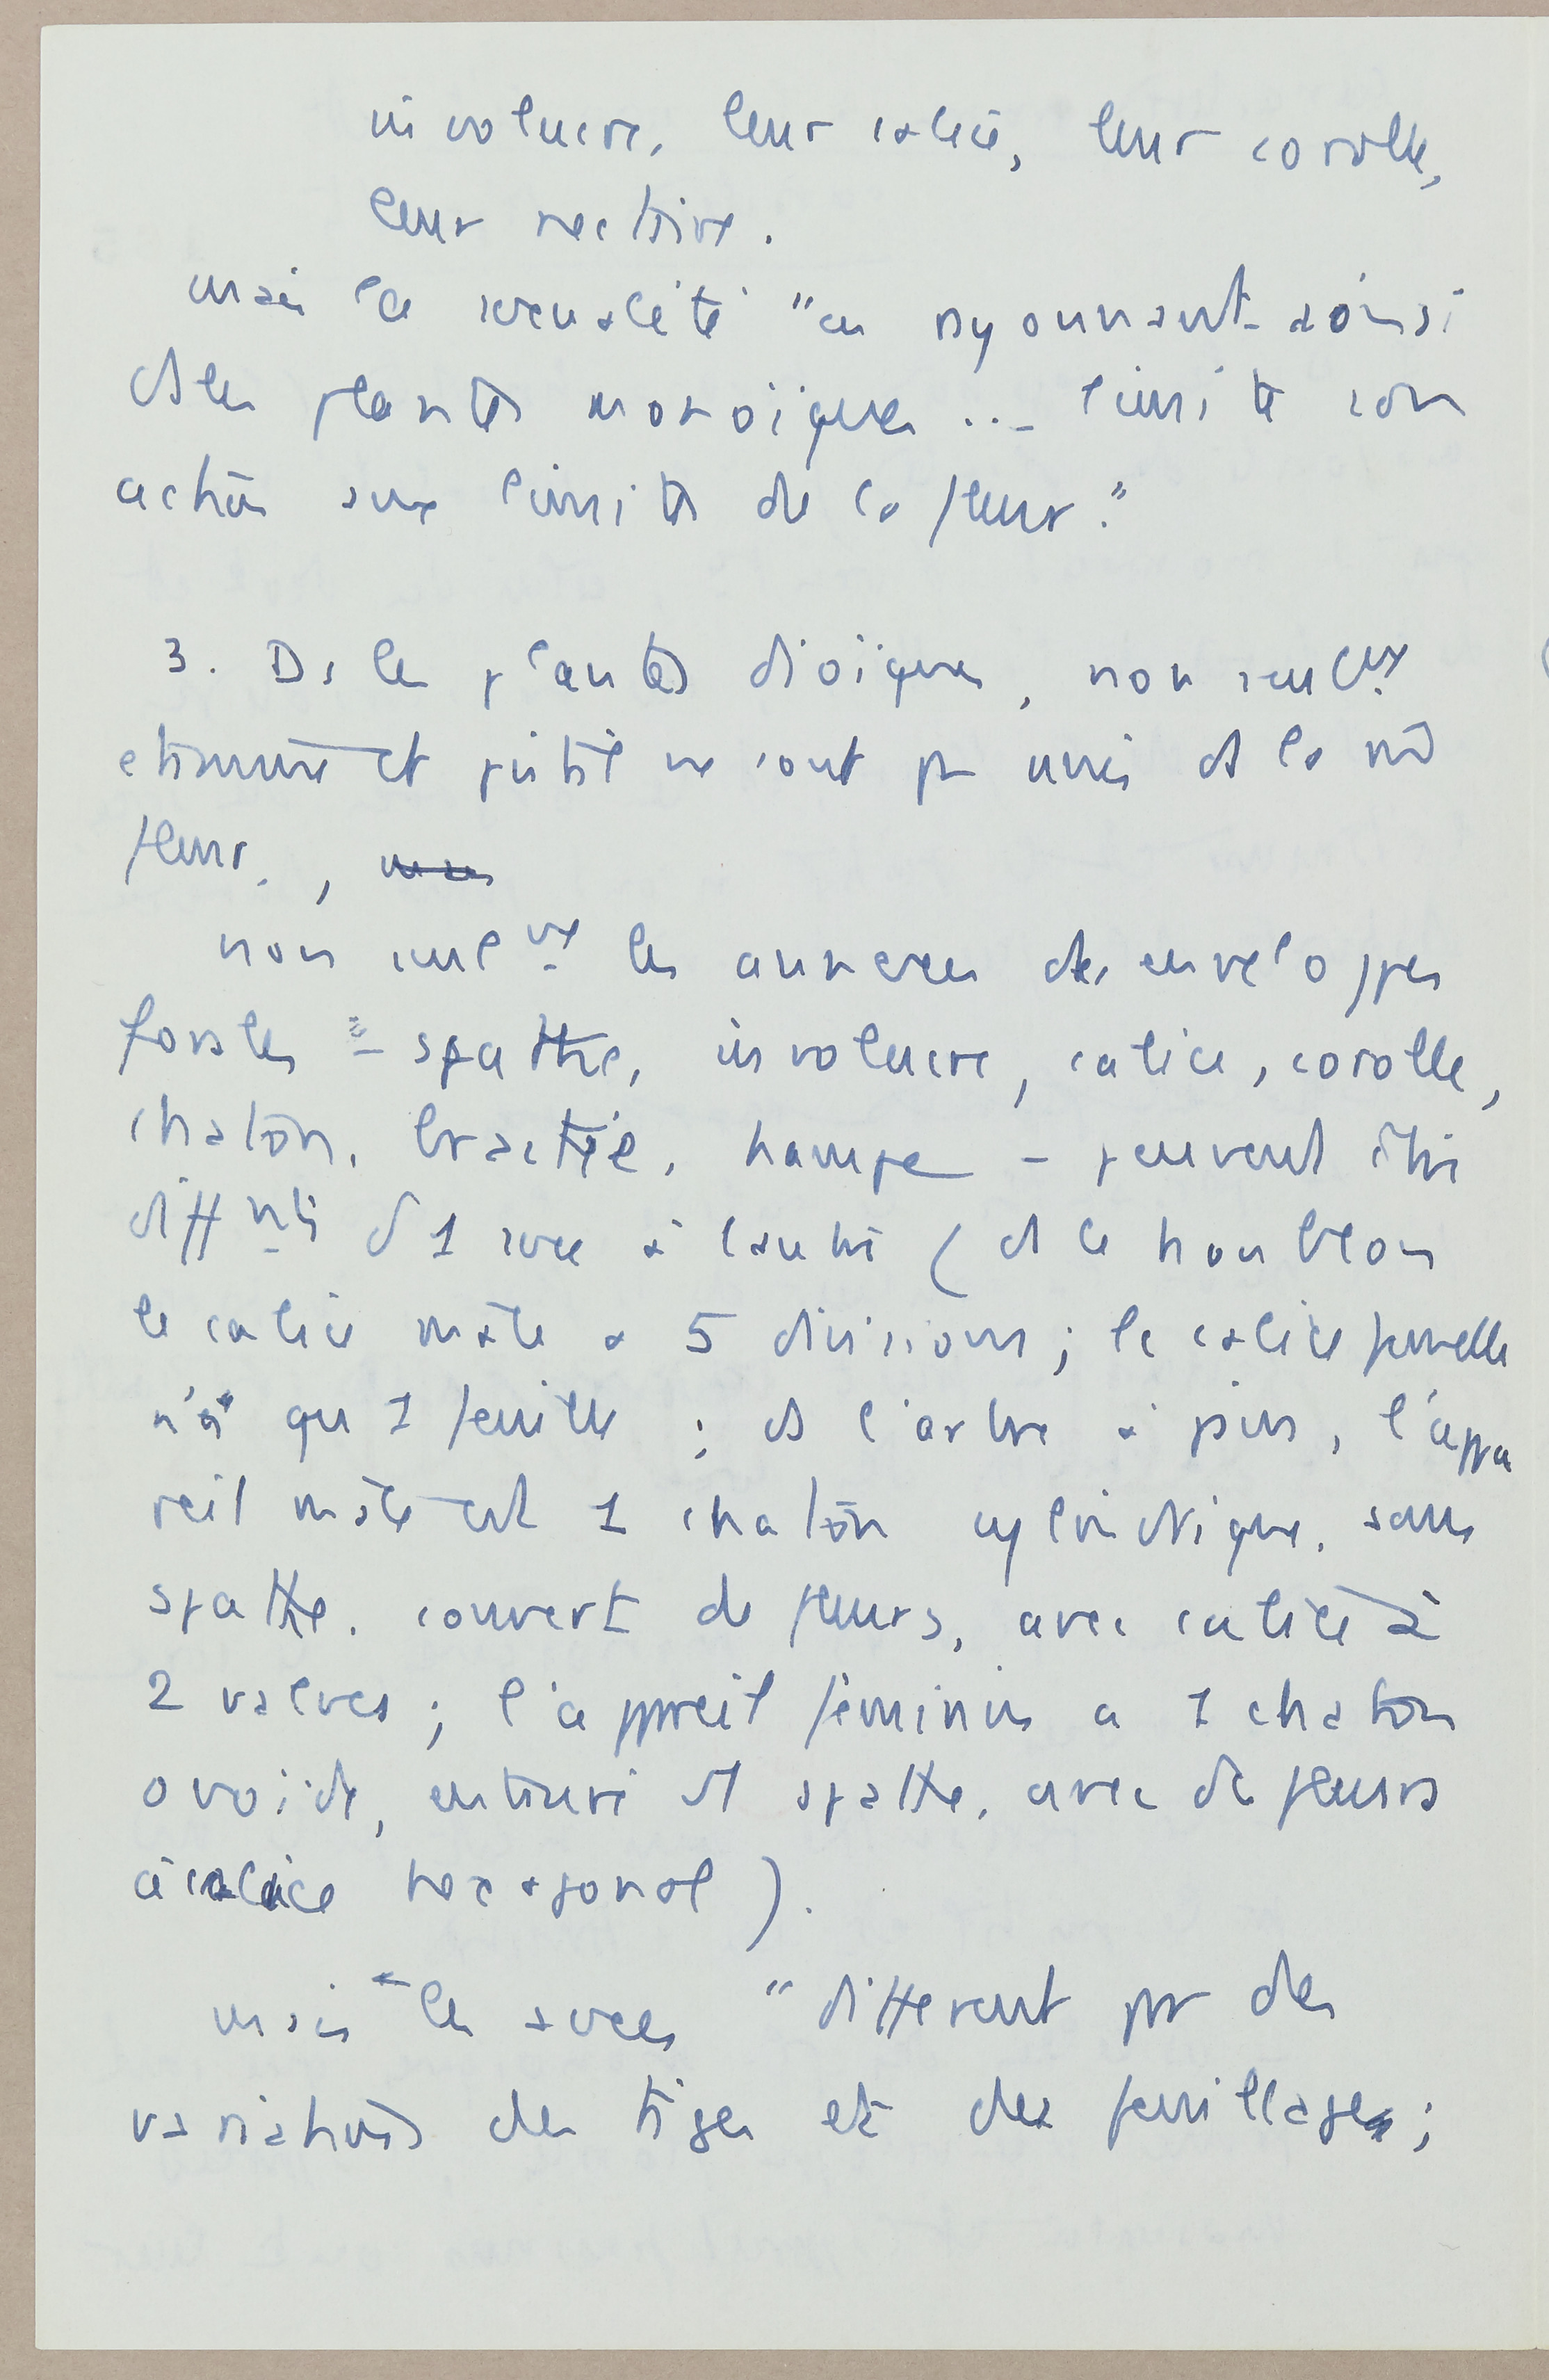 involucre, leur calice, leur corolle,
leur nectaire.
mais la sexualité "en rayonnant ainsi
ds les plantes monoïques ... limite son
action aux limites de la fleur."
3. Ds les plantes dioïques, non seulᵗ
étamine et pistil ne sont pas unis ds la mê
fleur.,
non seulᵗ les annexes des enveloppes
florales – spathe, involucre, calice, corolle,
chaton, bractée, hampe – peuvent être
difftˢ d'1 sexe à l'autre (ds le houblon
le calice mâle a 5 divisions ; le calice femelle
n'a qu'1 feuille ; ds l'arbre à pin, l'appa
reil mâle est 1 chaton cylindrique, sans
spathe, couvert de fleurs, avec calice à
2 valves ; l'appareil féminin a 1 chaton
ovoïde, entouré d'1 spathe, avec des fleurs
à calice hexagonal).
mais les sexes "diffèrent par des
variations des tiges et des feuillages ;